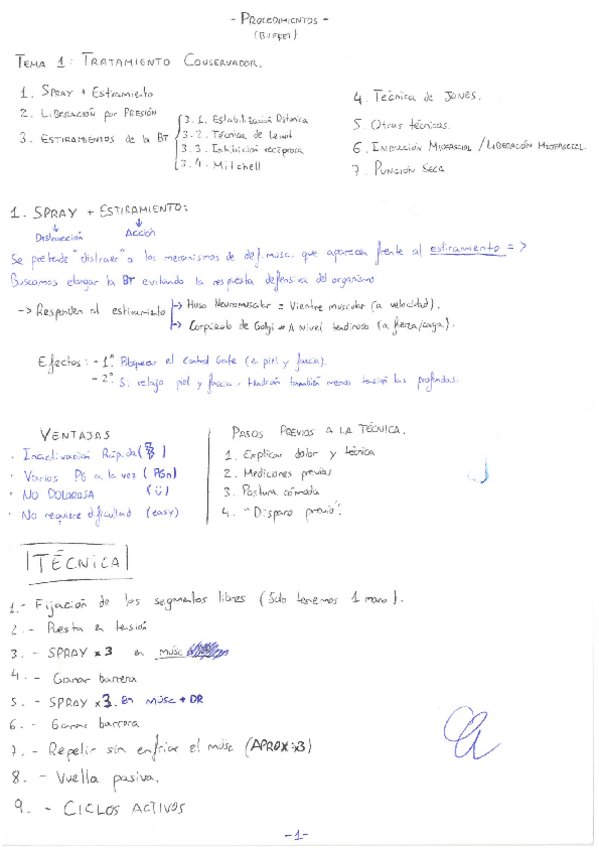 - PROCEDIMIENTOS -
(BUFFET)
TEMA 1: TRATAMIENTO CONSERVADOR.
1. SPRAY + Estiramiento
2. LIBERACIÓN por PRESIÓN
3. ESTIRAMIENTOS de la BT
3.1. Estabilización Rítmica
3.2. Técnica de Lewit
3.3. Inhibición recíproca
3.4. Mitchell
4. Técnica de JONES.
5. Otras técnicas.
6. INDUCCIÓN MIOFASCIAL / LIBERACIÓN MIOFASCIAL.
7. PUNCIÓN SECA
1. SPRAY + ESTIRAMIENTO:
Distracción Acción
Se pretende "distraer" a los mecanismos de def. musc. que aparecen frente al estiramiento = >
Buscamos elongar la BT evitando la respuesta defensiva del organismo
-> Responden al estiramiento
-> Huso Neuromuscular = Vientre muscular (a velocidad).
-> Corpúsculo de Golgi = A nivel tendinoso (a fuerza/carga).
Efectos: - 1º Bloquear el Control Gate (en piel y fascia).
- 2º Si relajo piel y fascia, tendrán también menos tensión las profundas.
VENTAJAS
· Inactivación Rápida ( )
· Varios PG a la vez ( PGn)
· NO DOLOROSA (ü)
· No requiere dificultad (easy)
PASOS PREVIOS A LA TÉCNICA.
1. Explicar dolor y técnica
2. Mediciones previas
3. Postura cómoda
4. "Disparo previo".
TÉCNICA
1.- Fijación de los segmentos libres (Solo tenemos 1 mano).
2.- Puesta en tensión
3.- SPRAY x3 en músc
4.- Ganar barrera
5.- SPRAY x3 en músc + DR
6.- Ganar barrera
7.- Repetir sin enfriar el músc (APROX: x3)
8.- Vuelta pasiva.
9.- CICLOS ACTIVOS
-1-